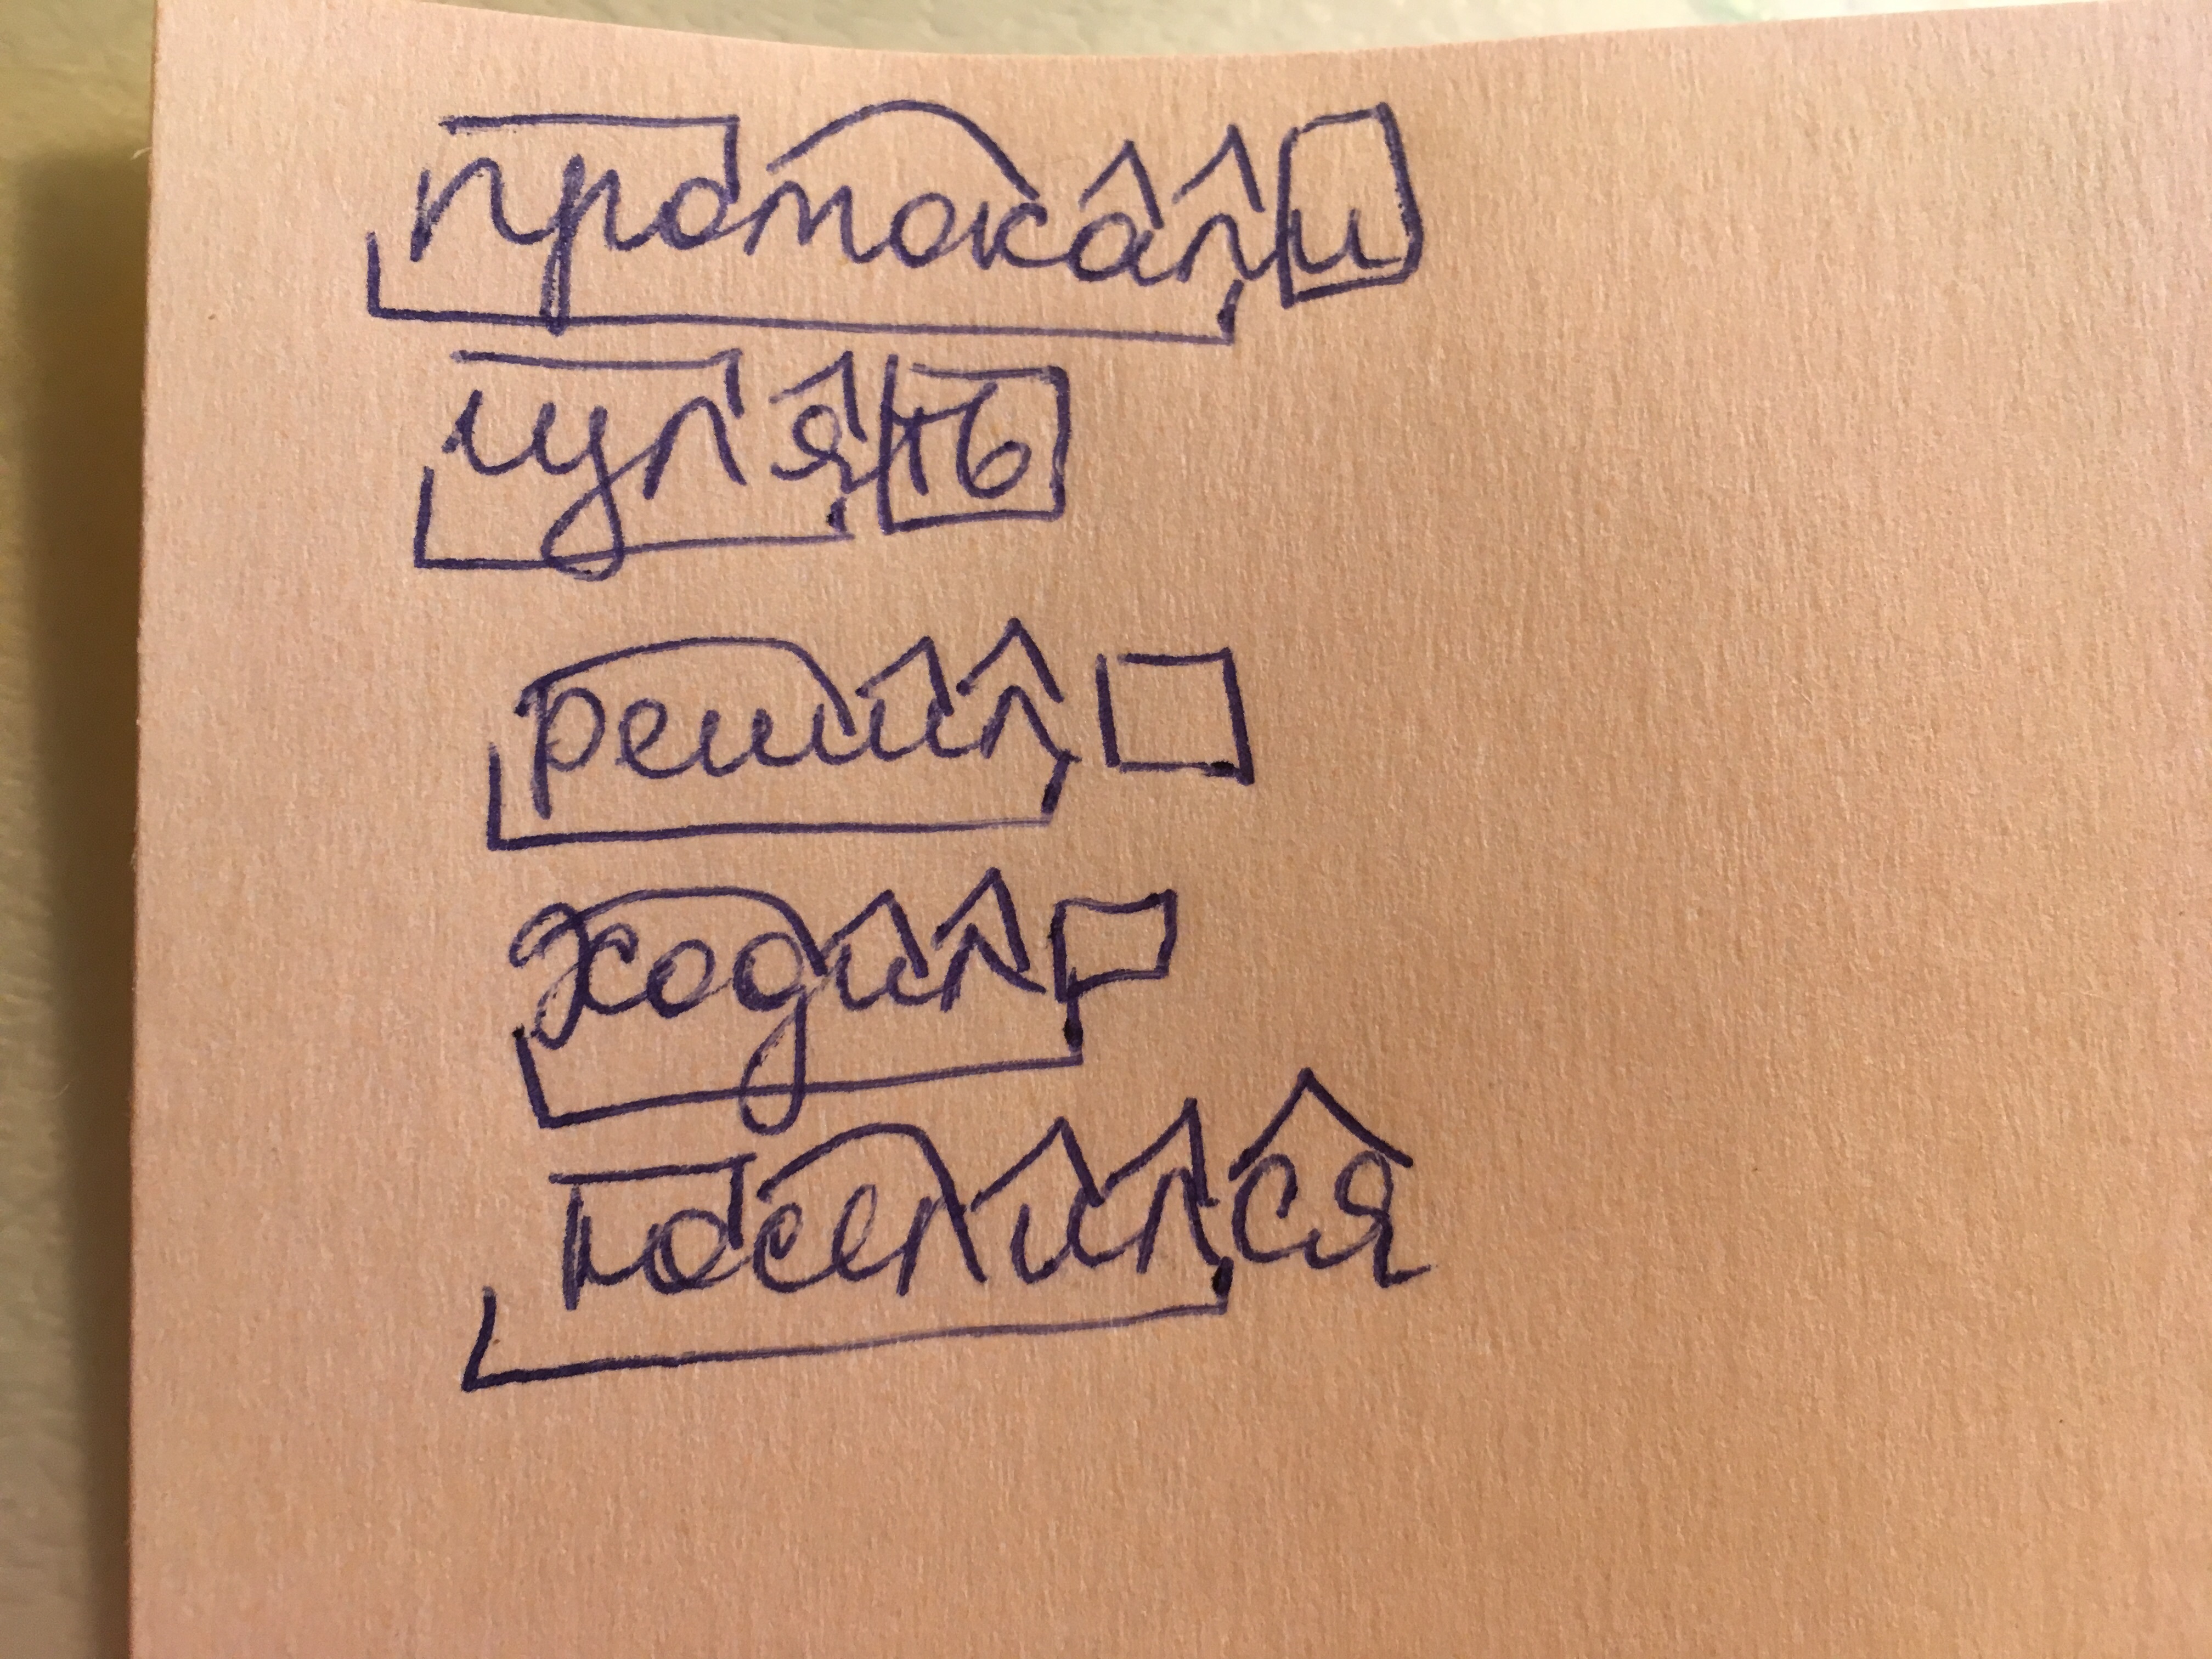 протокали
гулять
решил
ходил
поселился